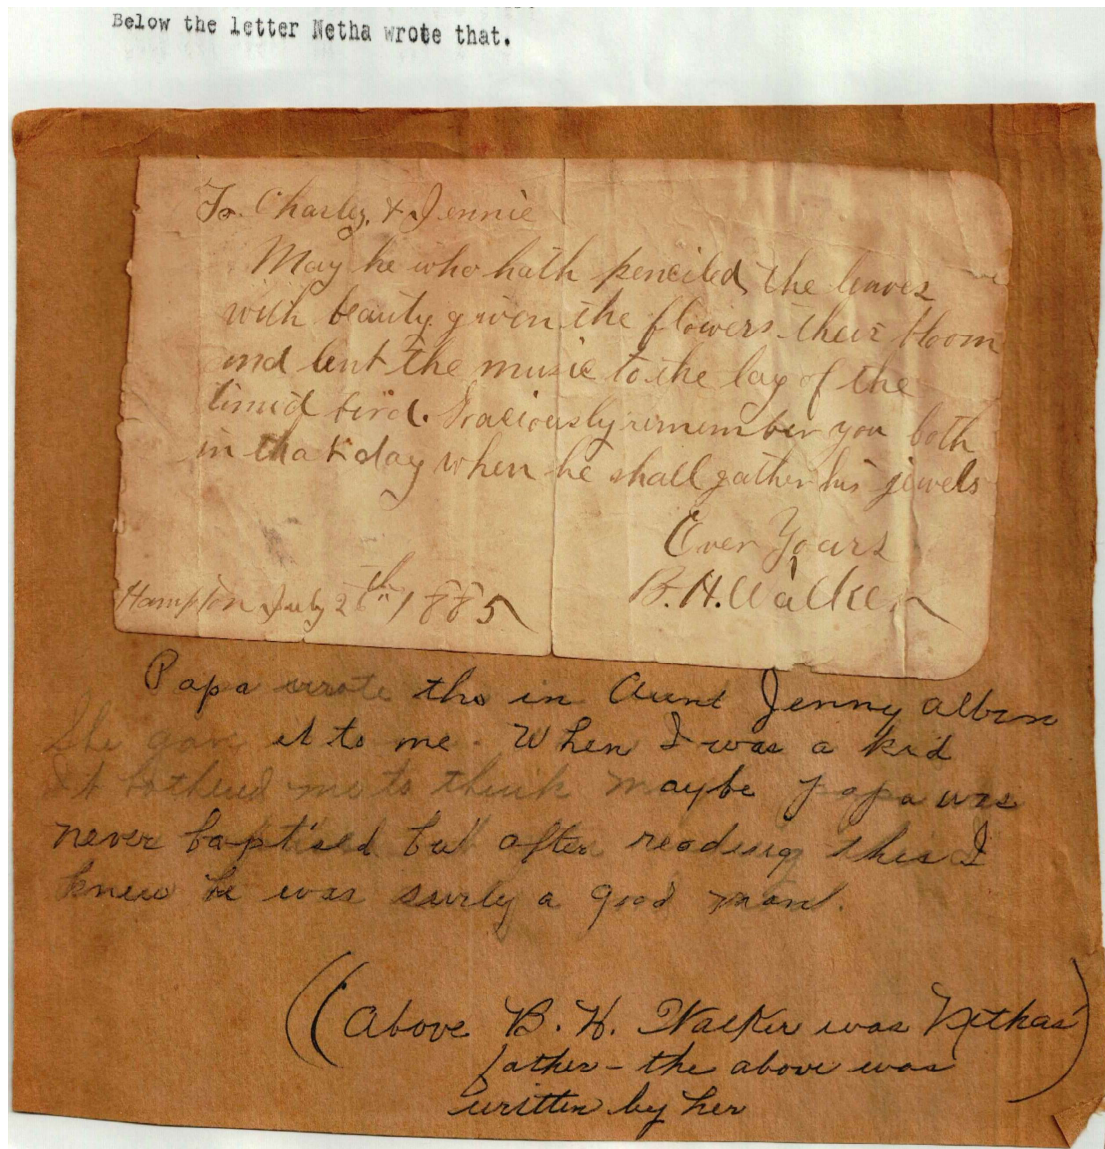 Below the letter Netha wrote that.
To. Charley, & Jennie
May he who hath penciled, the leaves
with beauty, given the flowers their bloom
and lent the music to the lay of the
timid bird. Graciously remember you both
in that day when he shall gather his jewels
Ever Yours
B. H. Walker
Hampton July 28th 1885
Papa wrote the in Aunt Jenny albun
She gave it to me. When I was a kid
It bothered me to think maybe papa was
never baptised but after reading this I
knew he was surly a good man.
((Above B. H. Walker was Nethas'
father - the above was
written by her)